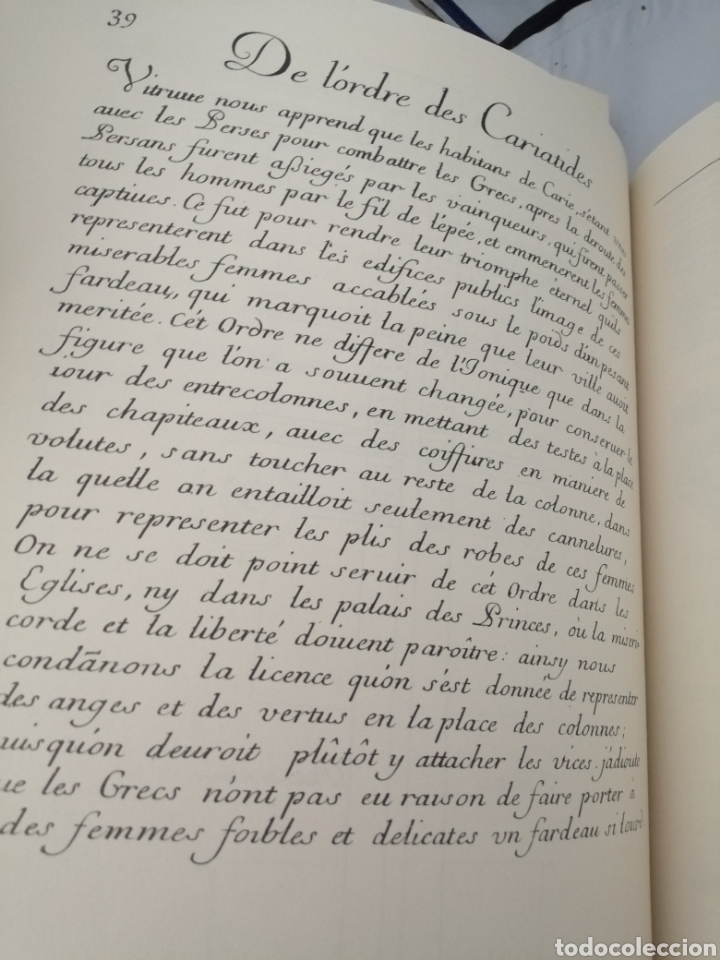 39
De l'ordre des Cariatides
Vitruue nous apprend que les habitans de Carie, s'étant unis
auec les Perses pour combattre les Grecs, apres la deroute des
Persans furent aßiegés par les vainqueurs, qui firent passer
tous les hommes par le fil de l'épée, et emmenerent les femmes
captiues. Ce fut pour rendre leur triomphe éternel qu'ils
representerent dans les edifices publics l'image de ces
miserables femmes accablées sous le poids d'un pesant
fardeau, qui marquoit la peine que leur ville auoit
meritée. Cét Ordre ne differe de l'Ionique que dans la
figure que l'on a souuent changée, pour conseruer le
iour des entrecolonnes, en mettant des testes à la place
des chapiteaux, auec des coiffures en maniere de
volutes, sans toucher au reste de la colonne, dans
la quelle an entailloit seulement des cannelures,
pour representer les plis des robes de ces femmes
On ne se doit point seruir de cét Ordre dans les
Eglises, ny dans les palais des Princes, où la miseri-
corde et la liberté doiuent paroître: ainsy nous
condãnons la licence qu'on s'est donnée de representer
des anges et des vertus en la place des colonnes;
uisqu'on deuroit plûtôt y attacher les vices. j'adioute
ue les Grecs n'ont pas eu raison de faire porter à
des femmes foibles et delicates vn fardeau si lourd
todocoleccion